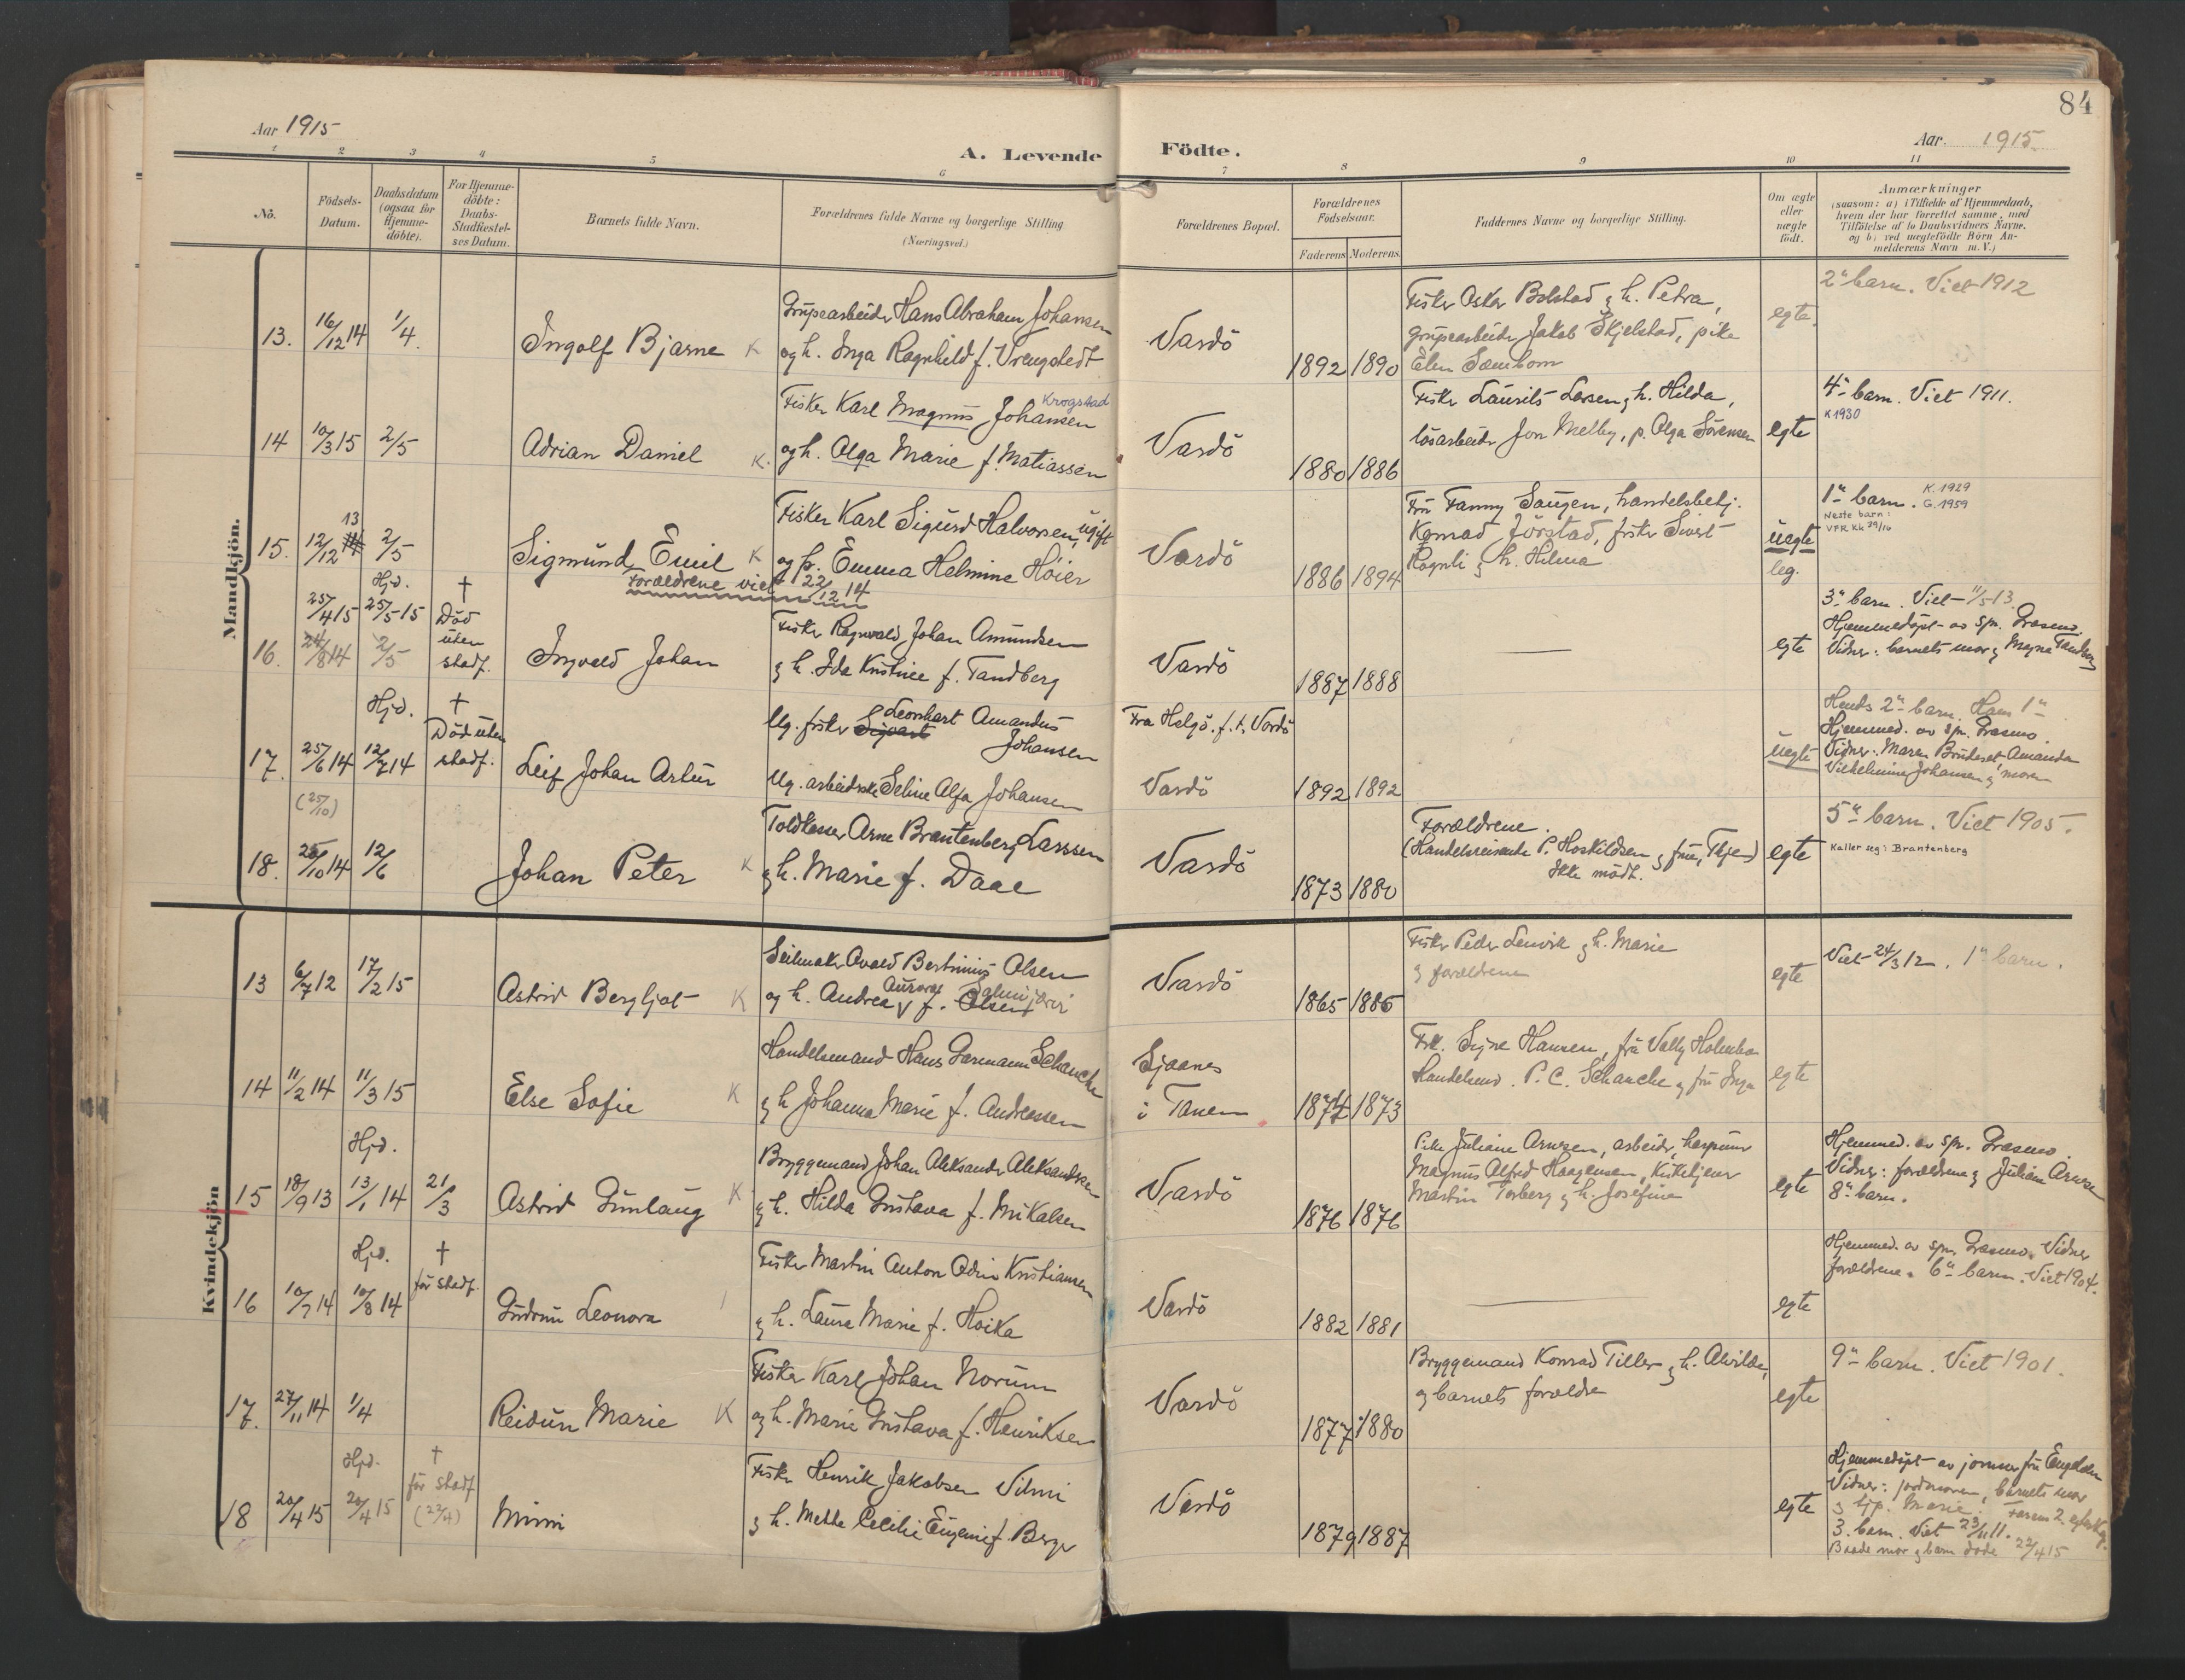 84
Aar 1915
A. Levende Födte.
Aar. 1915.
1 2 3 4 5 6 7 8 9 10 11
No.
Födsels-
Datum.
Daabsdatum
(ogsaa for
Hjemme-
döbte).
For Hjemme-
döbte:
Daabs-
Stadfæstel-
ses Datum.
Barnets fulde Navn.
Forældrenes fulde Navne og borgerlige Stilling
(Næringsvei.)
Forældrenes Bopæl.
Forældrenes
Födselsaar.
Faderens Moderens
Faddernes Navne og borgerlige Stilling.
Om ægte
eller
uægte
födt.
Anmærkninger
(saasom: a) i Tilfælde af Hjemmedaab,
hvem der har forrettet samme, med
Tilföielse af to Daabsvidners Navne.
og b) ved uægtefödte Börn An-
melderens Navn m. V.)
Mandkjön.
13. 16/12 14 1/4 Ingolf Bjarne K
Grupearbeider Hans Abraham Johansen
og h. Inga Ragnhild f. Vrengstedt
Vardö
1892 1890
Fisker Oskar Bolstad & h. Petra,
grupearbeider Jakob Skjelstad, pike
Elen
egte.
2" barn. Viet 1912
14 10/3 15 2/5 Adrian Daniel K.
Krogstad
Fisker Karl Magnus Johansen
og h. Olga Marie f. Matiassen
Vardö
1880 1886
Fisker Laurits Larsen & h. Hilda,
lösarbeider Jon Melby, p. Olga Sörensen
egte
4" barn. Viet 1911.
K 1930
13
15. 12/12 14 2/5 Sigmund Emil K
Fisker Karl Sigurd Halvorsen, ugift
og p. Emma Helmine Höier
Forældrene viet 22/12 14
Vardö
1886 1894
Fru Fanny Saugen, handelsbetj.
Konrad Jörstad, fisker Sivert
Rognli & h. Hilma
uegte
leg.
1" barn. K. 1929
G. 1959
Neste barn:
VFR kk 29/16
Hjd. †
25/4 15 25/5 15 Död
uten
stadf.
16. 24/8 14 2/5 Ingvald Johan
Fisker Ragnvald Johan Amundsen
& h. Ida Kristine f. Tandberg
Vardö
1887 1888
egte
3" barn. Viet 11/5 13
Hjemmedöpt av spr. Grasmo.
Vidner: barnets mor & Magna Tandberg
Hjd. †
Död uten
stadf.
17. 25/6 14 12/7 14 Leif Johan Artur
Ug. fisker Sigvart Leonhart Amandus
Johansen
Ug. arbeiderske Seline Alfa Johansen
Fra Helgö. f. t. Vardö
Vardö
1892 1892
uegte
Hends 2" barn. Hans 1"
Hjemmed. av spr. Grasmo.
Vidner: Maren Amanda
Vilhelmine Johansen & moren
(25/10)
18. 25/10 14 12/6 Johan Peter K
Toldkasser Arne Brantenberg Larssen
& h. Marie f. Daae
Vardö
1873 1880
Forældrene.
(Handelsreisende P. Hoskildsen & frue, )
Ikke mödt.
egte
5" barn. Viet 1905.
Kaller seg: Brantenberg
Kvindekjön
13 6/7 12 17/2 15 Astrid Bergljot K
Seilmaker Avald Bertinius Olsen
og h. Andrea Aurora f. Olsen Salmijærvi
Vardö
1865 1885
Fisker Peder Lenvik & h. Marie
& forældrene
egte
Viet 24/3 12. 1" barn.
14 11/2 14 11/3 15 Else Sofie K
Handelsmand Hans Garmann Schanche
& h. Johanna Marie f. Andreassen
Sjaanes
i Tanen
1874 1873
Frk. Signe Hansen, fru Vally Holmbo
Handelsmd. P. C. Schanche & fru Inga
egte
Hjd.
15 18/9 13 13/1 14 21/3 Astrid Gunlaug K
Bryggemand Johan Aleksander Aleksandersen
& h. Hilda Gustava f. Mikalsen
Vardö
1876 1876
Pike Juliane Arnesen, arbeider,
Magnus Alfred Haagensen, kirketjener
Martin Torberg & h. Josefine
egte
Hjemmed. av spr. Grasmo.
Vidner: forældrene & Juliane Arnesen
8" barn.
Hjd. †
för stadf.
16 10/7 14 10/8 14 Gudrun Leonora
Fisker Martin Anton Odin Kristiansen
& h. Laura Marie f. Hoika
Vardö
1882 1881
egte
Hjemmed. av spr. Grasmo. Vidner
forældrene. 6" barn. Viet 1904.
17. 27/11 14 1/4 Reidun Marie K
Fisker Karl Johan Norum
og h. Marie Gustava f. Henriksen
Vardö
1877 1880
Bryggemand Konrad Tiller & h. Alvilde,
og barnets forældre
egte
9" barn. Viet 1901.
Hjd. †
för stadf
(22/4)
18 20/4 15 20/4 15 Mimi
Fisker Henrik Jakobsen Vilmi
& h. Mette Cecilie Eugenie f. Berger
Vardö
1879 1887
egte
Hjemmedöpt av jormor fru Engelsen
Vidner: jordmoren, barnets mor
& tjp. Marie. Farens 2. egteskap.
3. barn. Viet 23/11 11.
Baade mor & barn döde 22/4 15